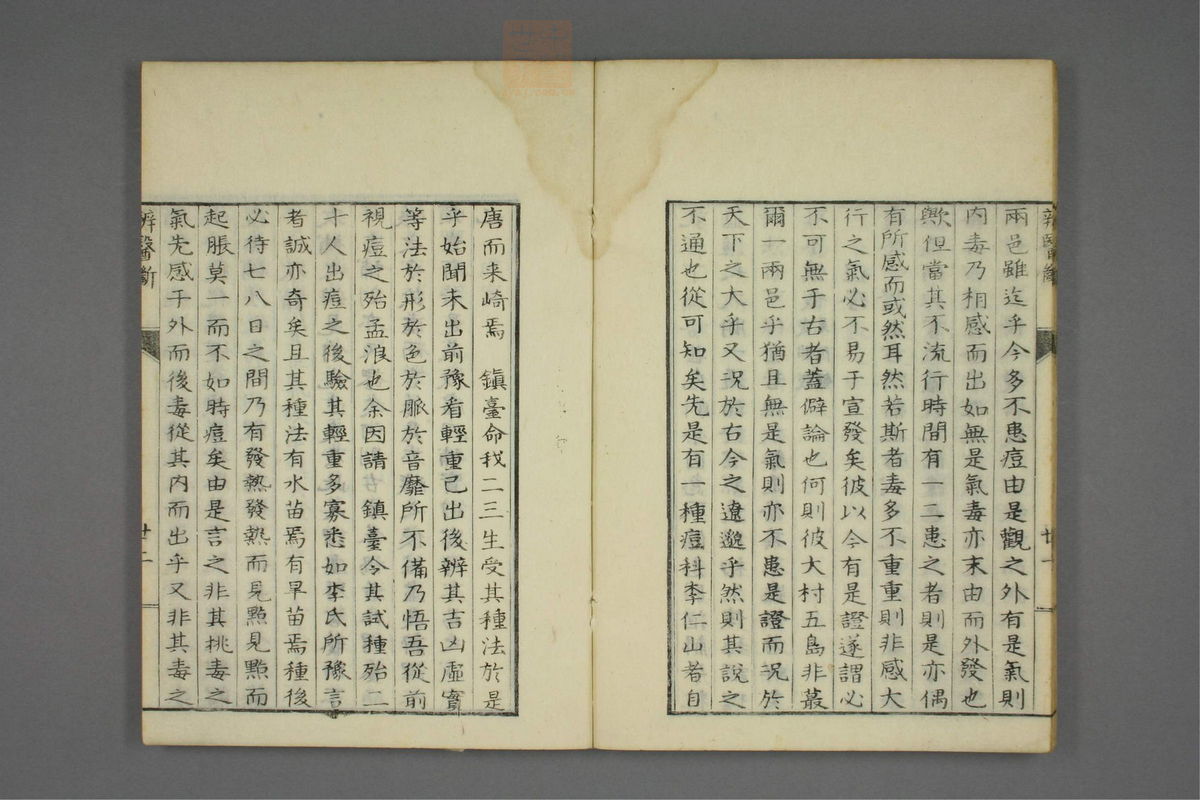 兩邑雖迄乎今多不患痘由是觀之外有是氣則
内毒乃相感而出如無是氣毒亦末由而外發也
歟但當其不流行時間有一二患之者則是亦偶
有所感而或然耳然若斯者毒多不重重則非感大
行之氣必不易于宣發矣彼以今有是證遂謂必
不可無于古者蓋僻論也何則彼大村五島非蕞
爾一兩邑乎猶且無是氣則亦不患是證而况於
天下之大乎又况於古今之遼邈乎然則其說之
不通也從可知矣先是有一種痘科李仁山者自
辨醫斷
廿一
唐而来崎焉　鎮臺命我二三生受其種法於是
乎始聞未出前豫看輕重已出後辨其吉凶虛實
等法於形於色於脈於音靡所不備乃悟吾從前
視痘之殆孟浪也余因請　鎮臺令其試種殆二
十人出痘之後驗其輕重多寡悉如李氏所豫言
者誠亦奇矣且其種法有水苗焉有旱苗焉種後
必待七八日之間乃有發熱發熱而見點見點而
起脹莫一而不如時痘矣由是言之非其挑毒之
氣先感于外而後毒從其内而出乎又非其毒之
辨醫斷
廿二